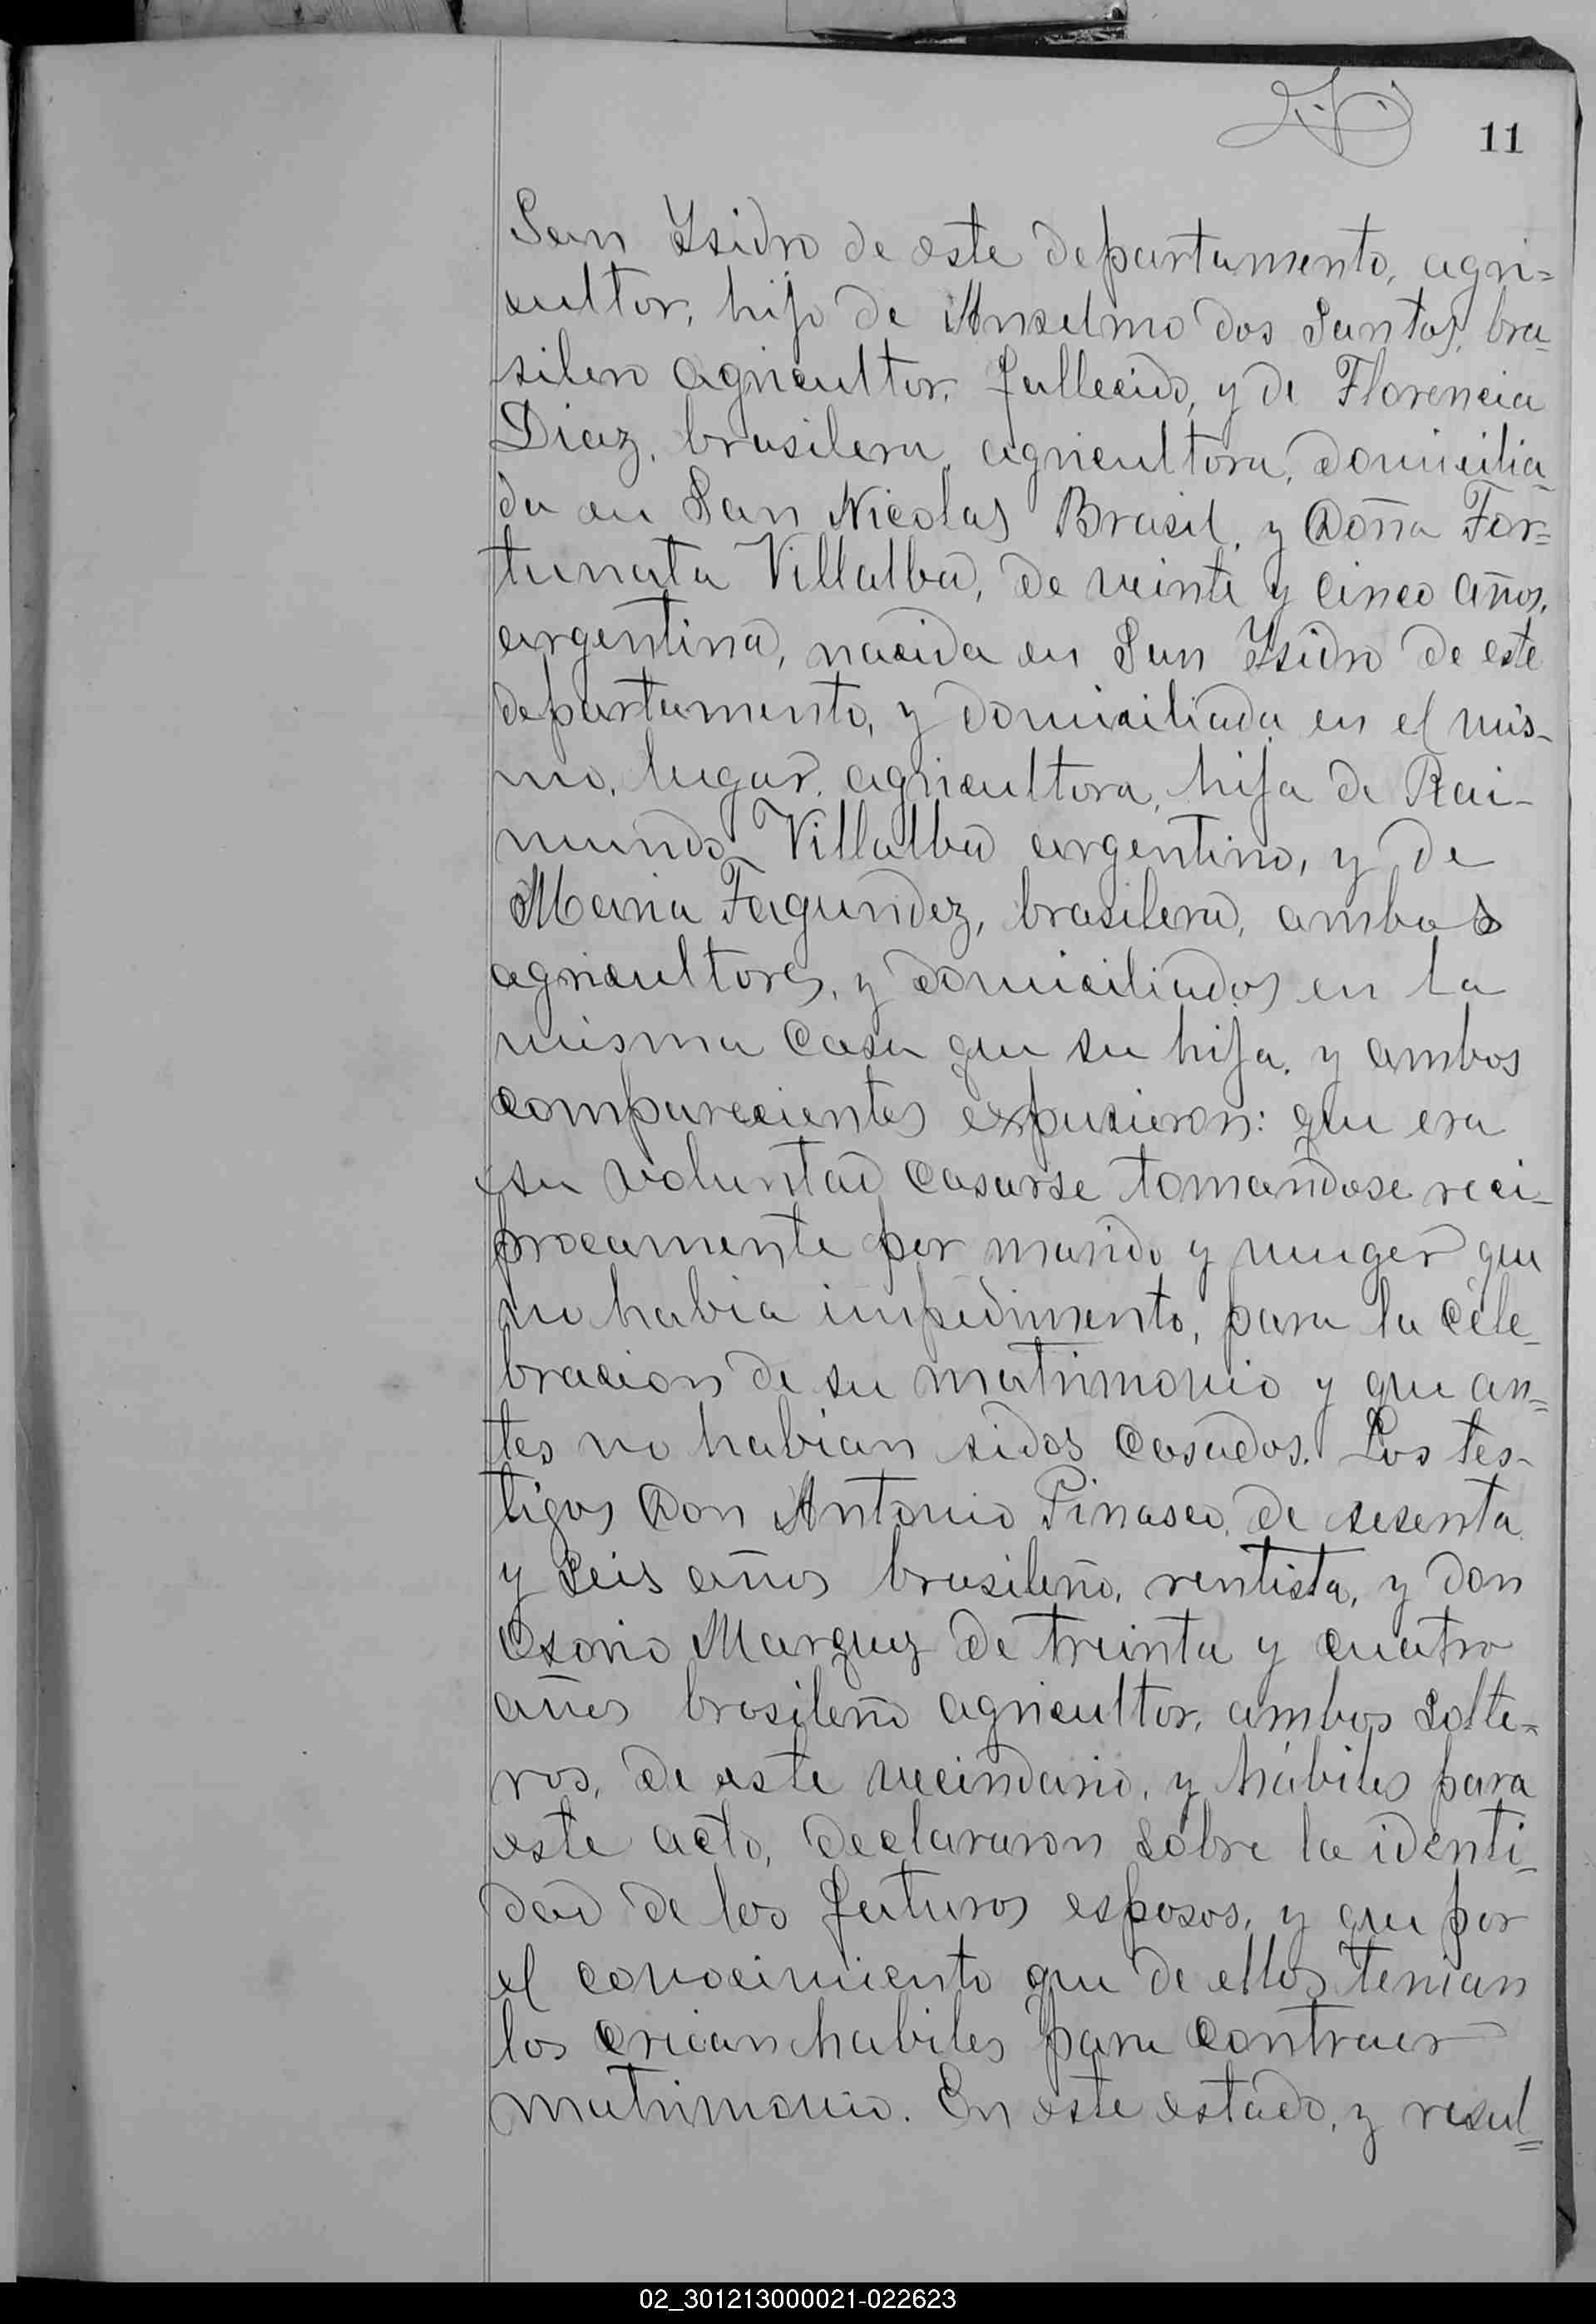 11
San Ysidro de este departamento, agri=
cultor, hijo de Anselmo dos Santos, bra-
silero agricultor, fallecido, y de Florencia
Diaz, brasilera, agricultora, domicilia-
da en San Nicolas Brasil, y Doña For=
tunata Villalba, de veinte y cinco años,
argentina, nacida en San Ysidro de este
departamento, y domiciliada en el mis-
mo, lugar, agricultora, hija de Rai-
mundo Villalba argentino, y de
Maria Fagundez, brasilera, ambos
agricultores, y domiciliados en la
misma casa que su hija, y ambos
comparecientes expusieron: que era
su voluntad casarse tomandose reci-
procamente por marido y muger que
no habia impedimento, para la cele-
bracion de su matrimonio y que an=
tes no habian sidos casados. Los tes-
tigos Don Antonio Pinasco, de sesenta
y seis años brasileño, rentista, y don
Osorio Marquez de treinta y cuatro
años brasileño agricultor, ambos solte=
ros, de este vecindario, y hábiles para
este acto, declararon sobre la identi-
dad de los futuros esposos, y que por
el conocimiento que de ellos tenian
los creian habiles para contraer
matrimonio. En este estado, y resul=
02_301213000021-022623